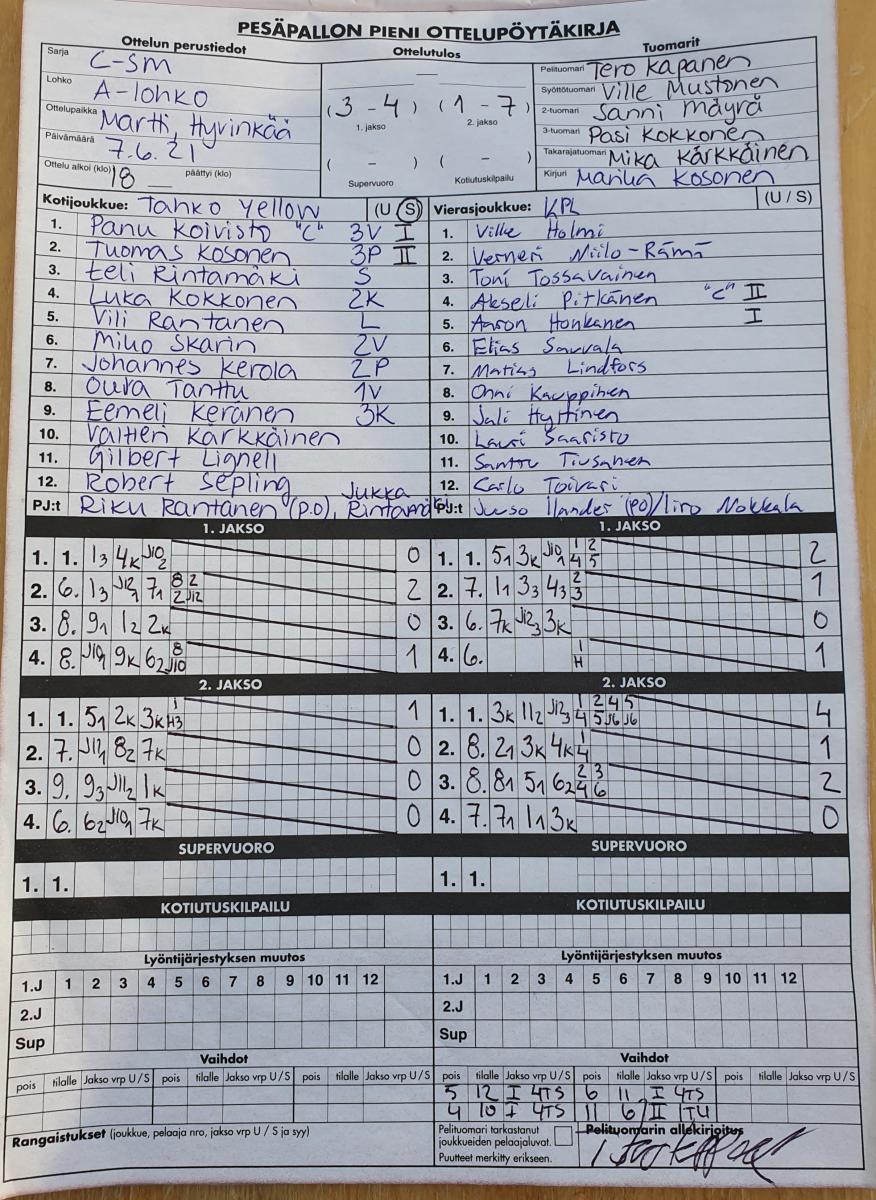 PESÄPALLON PIENI OTTELUPÖYTÄKIRJA
Ottelun perustiedot
Ottelutulos
Tuomarit
Sarja C-SM
Lohko A-lohko
Ottelupaikka Martti, Hyvinkää
Päivämäärä 7.6.21
Ottelu alkoi (klo) 18 päättyi (klo)
(3 - 4) (1 - 7)
1. jakso 2. jakso
( - ) ( - )
Supervuoro Kotiutuskilpailu
Pelituomari Tero Kapanen
Syöttötuomari Ville Mustonen
2-tuomari Sanni Mäyrä
3-tuomari Pasi Kokkonen
Takarajatuomari Mika Kärkkäinen
Kirjuri Marika Kosonen
Kotijoukkue: Tahko Yellow (U / S)
1. Panu Koivisto "C" 3V I
2. Tuomas Kosonen 3P II
3. Eeli Rintamäki S
4. Luka Kokkonen 2K
5. Vili Rantanen L
6. Miko Skarin 2V
7. Johannes Kerola 2P
8. Oura Tanttu 1V
9. Eemeli Keränen 3K
10. Valtteri Kärkkäinen
11. Gilbert Lignell
12. Robert Sepling
PJ:t Riku Rantanen (P.O), Jukka Rintamäki
Vierasjoukkue: KPL (U / S)
1. Ville Holmi
2. Verneri Niilo-Rämä
3. Toni Tossavainen
4. Akseli Pitkänen "C" II
5. Aaron Honkanen I
6. Elias Sauvala
7. Matias Lindfors
8. Onni Kauppinen
9. Jali Hyttinen
10. Lauri Saaristo
11. Santtu Tiusanen
12. Carlo Toivari
PJ:t Juuso Ilander (PO)/Iiro Nokkala
1. JAKSO
1. 1. 13 4K J102 0
2. 6. 13 J121 71 8 2 2 J12 2
3. 8. 91 12 2K 0
4. 8. J101 9K 62 8 J10 1
1. JAKSO
1. 1. 51 3K J101 1 2 4 5 2
2. 7. 11 33 43 2 3 1
3. 6. 7K J123 3K 0
4. 6. 1 H 1
2. JAKSO
1. 1. 51 2K 3K 1 H3 1
2. 7. J121 82 7K 0
3. 9. 93 J112 1K 0
4. 6. 62 J101 7K 0
2. JAKSO
1. 1. 3K 112 J123 1 2 4 5 4 5 J6 J6 4
2. 8. 21 3K 4K 1 4 1
3. 8. 81 51 62 2 3 4 6 2
4. 7. 71 11 3K 0
SUPERVUORO
1. 1.
SUPERVUORO
1. 1.
KOTIUTUSKILPAILU
KOTIUTUSKILPAILU
Lyöntijärjestyksen muutos
1.J 1 2 3 4 5 6 7 8 9 10 11 12
2.J
Sup
Lyöntijärjestyksen muutos
1.J 1 2 3 4 5 6 7 8 9 10 11 12
2.J
Sup
Vaihdot
pois tilalle Jakso vrp U / S pois tilalle Jakso vrp U / S pois tilalle Jakso vrp U / S
Vaihdot
pois tilalle Jakso vrp U / S pois tilalle Jakso vrp U / S pois tilalle Jakso vrp U / S
5 12 I 4TS 6 11 I 4TS
4 10 I 4TS 11 6 II 1TU
Rangaistukset (joukkue, pelaaja nro, jakso vrp U / S ja syy)
Pelituomari tarkastanut
joukkueiden pelaajaluvat.
Puutteet merkitty erikseen.
Pelituomarin allekirjoitus